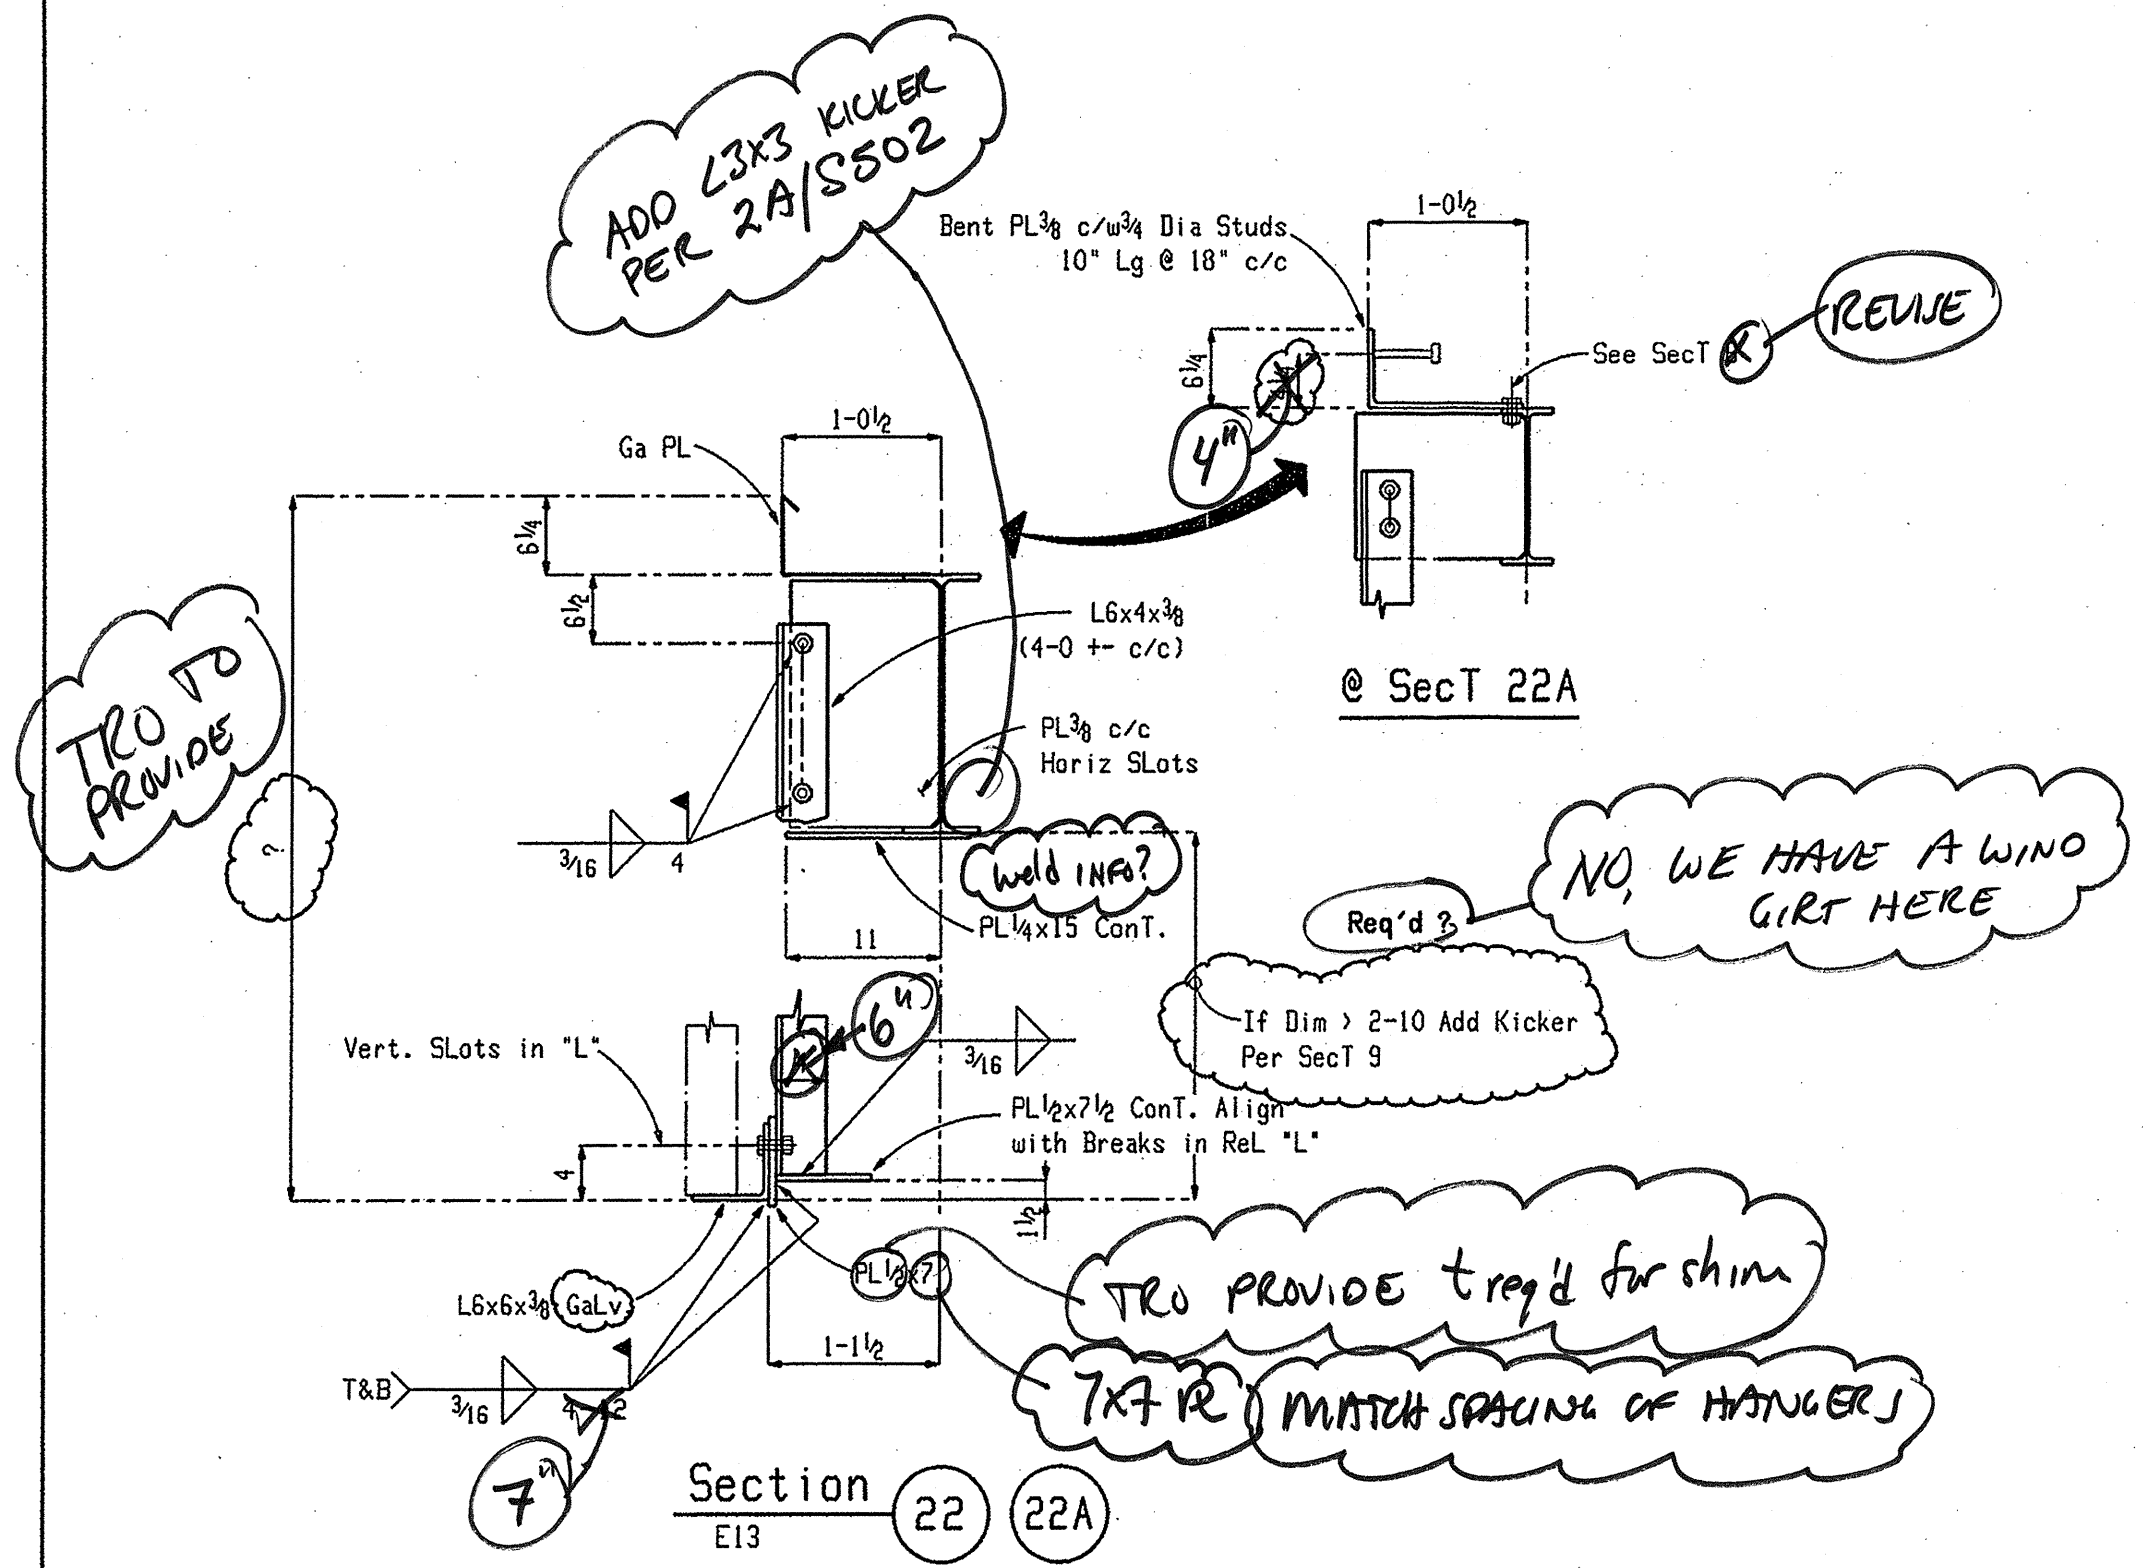 ADD L3X3 KICKER
PER 2A/S502
Bent PL3/8 c/w3/4 Dia Studs
10" Lg @ 18" c/c
1-0 1/2
REVISE
See SecT
6 1/4
4"
1-0 1/2
Ga PL
6 1/4
6 1/2
L6x4x3/8
(4-0 +- c/c)
@ SecT 22A
TRO TO
PROVIDE
?
PL3/8 c/c
Horiz SLots
3/16
4
weld INFO?
PL1/4x15 ConT.
11
Req'd ?
NO, WE HAVE A WIND
GIRT HERE
If Dim > 2-10 Add Kicker
Per SecT 9
6"
3/16
Vert. SLots in "L"
PL1/2x7 1/2 ConT. Align
with Breaks in ReL "L"
4
1 1/2
PL1/2x7
TRO PROVIDE t req'd for shim
L6x6x3/8 GaLv
1-1 1/2
7x7 PL MATCH SPACING OF HANGERS
T&B
3/16
7"
Section 22 22A
E13